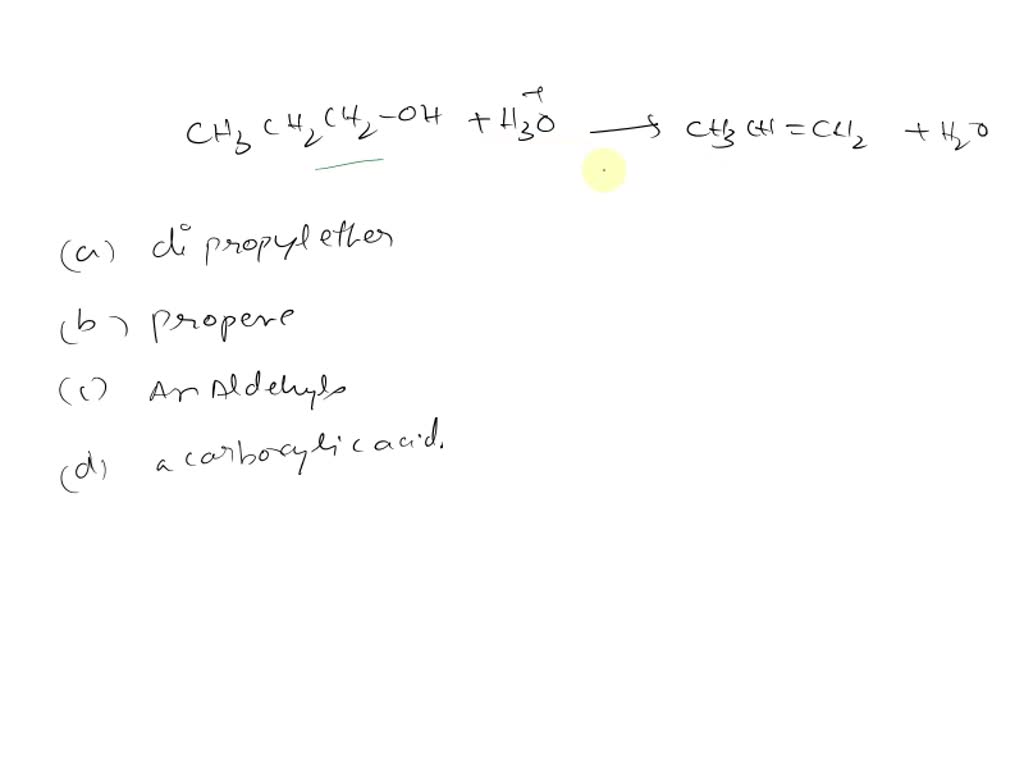 CH3 CH2 CH2-OH + H3O+ → CH3 CH=CH2 + H2O
(a) di propyl ether
(b) propene
(c) An Aldehyde
(d) a carboxylic acid.